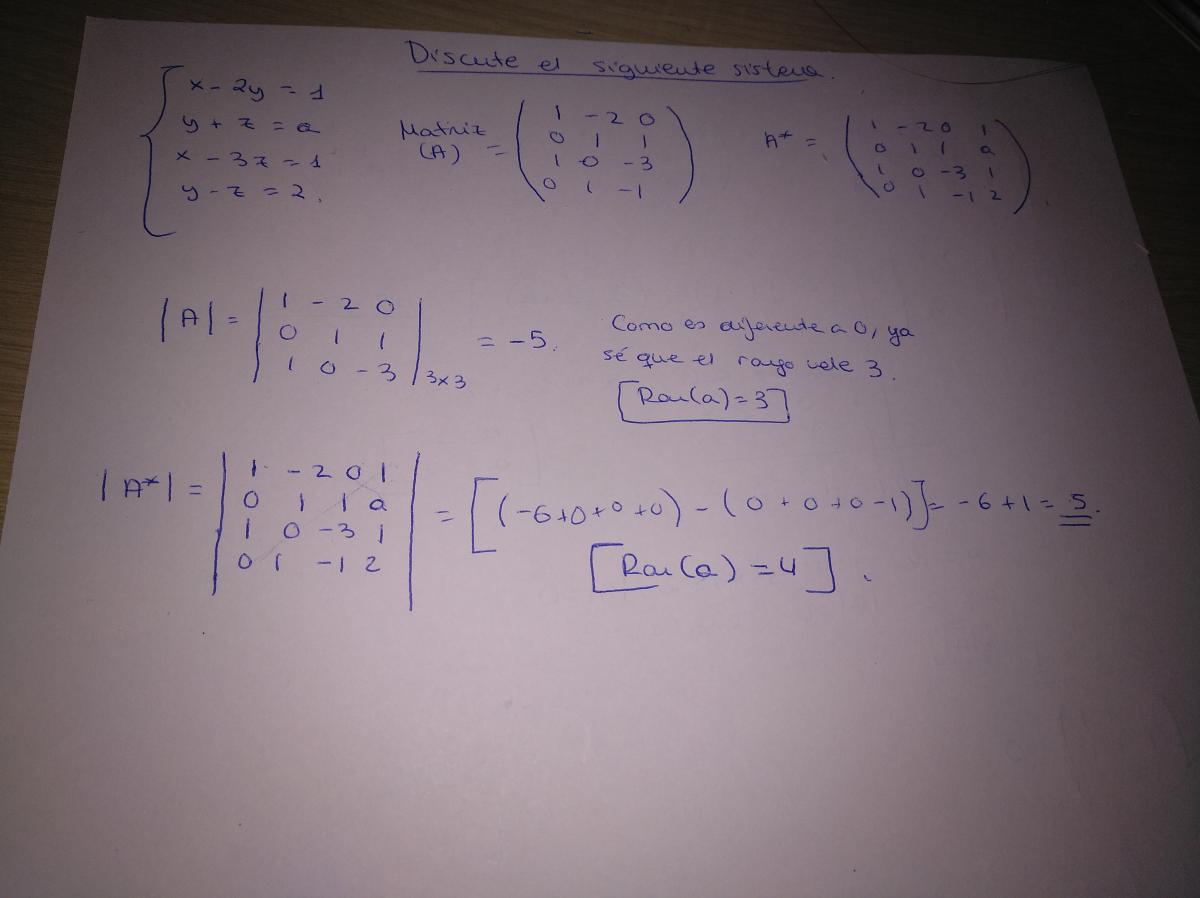 Discute el siguiente sistema.
x - 2y = 1
y + z = a
x - 3z = 1
y - z = 2.
Matriz (A) =
1 -2 0
0 1 1
1 0 -3
0 1 -1
A* =
1 -2 0 1
0 1 1 a
1 0 -3 1
0 1 -1 2
|A| =
1 -2 0
0 1 1
1 0 -3
3x3
= -5.
Como es diferente a 0, ya
sé que el rango vale 3.
[Ran(a) = 3]
|A*| =
1 -2 0 1
0 1 1 a
1 0 -3 1
0 1 -1 2
= [(-6+0+0+0) - (0+0+0-1)] = -6+1 = 5.
[Ran(a) = 4].